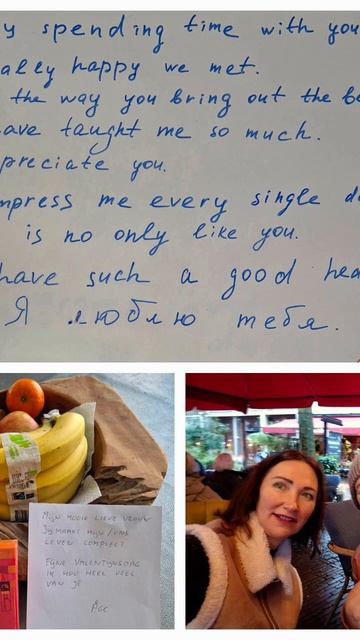 y spending time with you
ally happy we met.
the way you bring out the be
ave taught me so much.
preciate you.
mpress me every single d
is no only like you.
have such a good hea
Я люблю тебя.
MIJN MOOIE LIEVE VROUW
JIJ MAAKT MIJN / ONS
LEVEN COMPLEET
FIJNE VALENTIJNSDAG
IK HOU HEEL VEEL
VAN JE